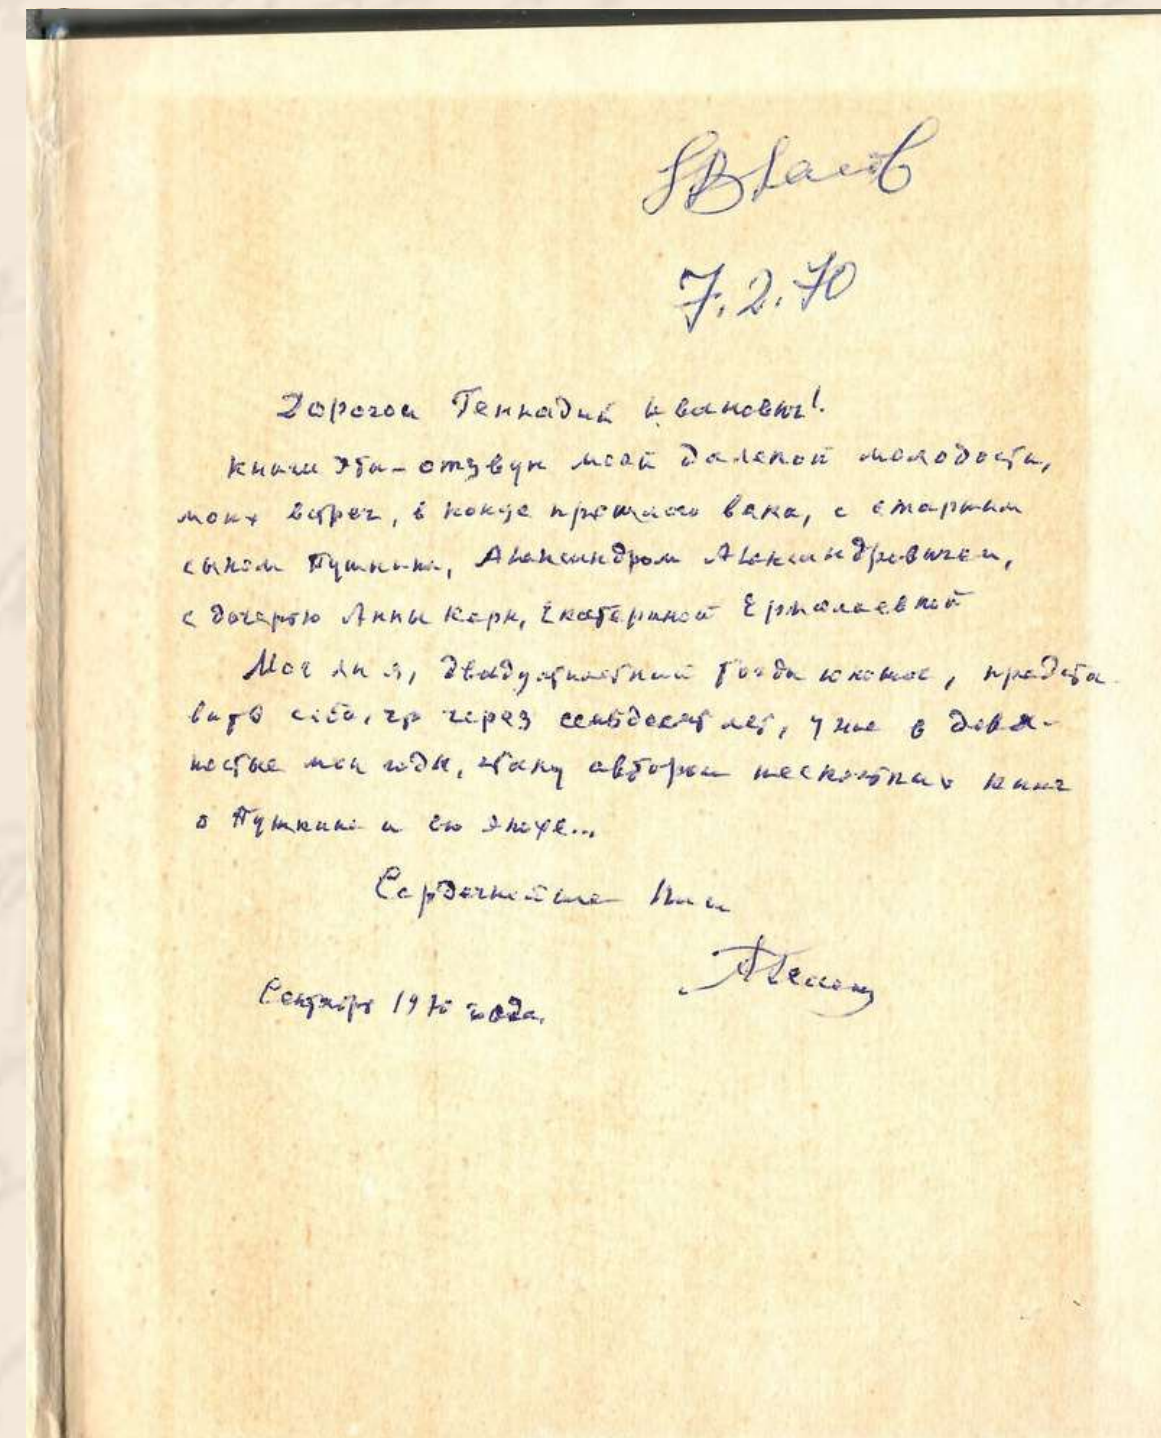 7.2.70
Дорогой Геннадий Иванович!
Книги эти – отзвук моей далекой молодости,
моих встреч, в конце прошлого века, с старшим
сыном Пушкина, Александром Александровичем,
с дочерью Анны Керн, Екатериной Ермолаевной
Мог ли я, двадцатилетний тогда юноша, предста-
вить себе, что через семьдесят лет, уже в девя-
ностые мои годы, стану автором нескольких книг
о Пушкине и его эпохе...
Сердечнейше Ваш
Сентябрь 1970 года.